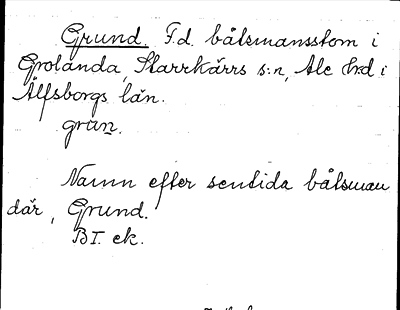 Grund. F.d. båtsmanstom i
Grolanda, Starrkärrs s:n, Ale hd i
Älfsborgs län.
grun̲.
Namn efter sentida båtsman
där, Grund.
BI. ek.